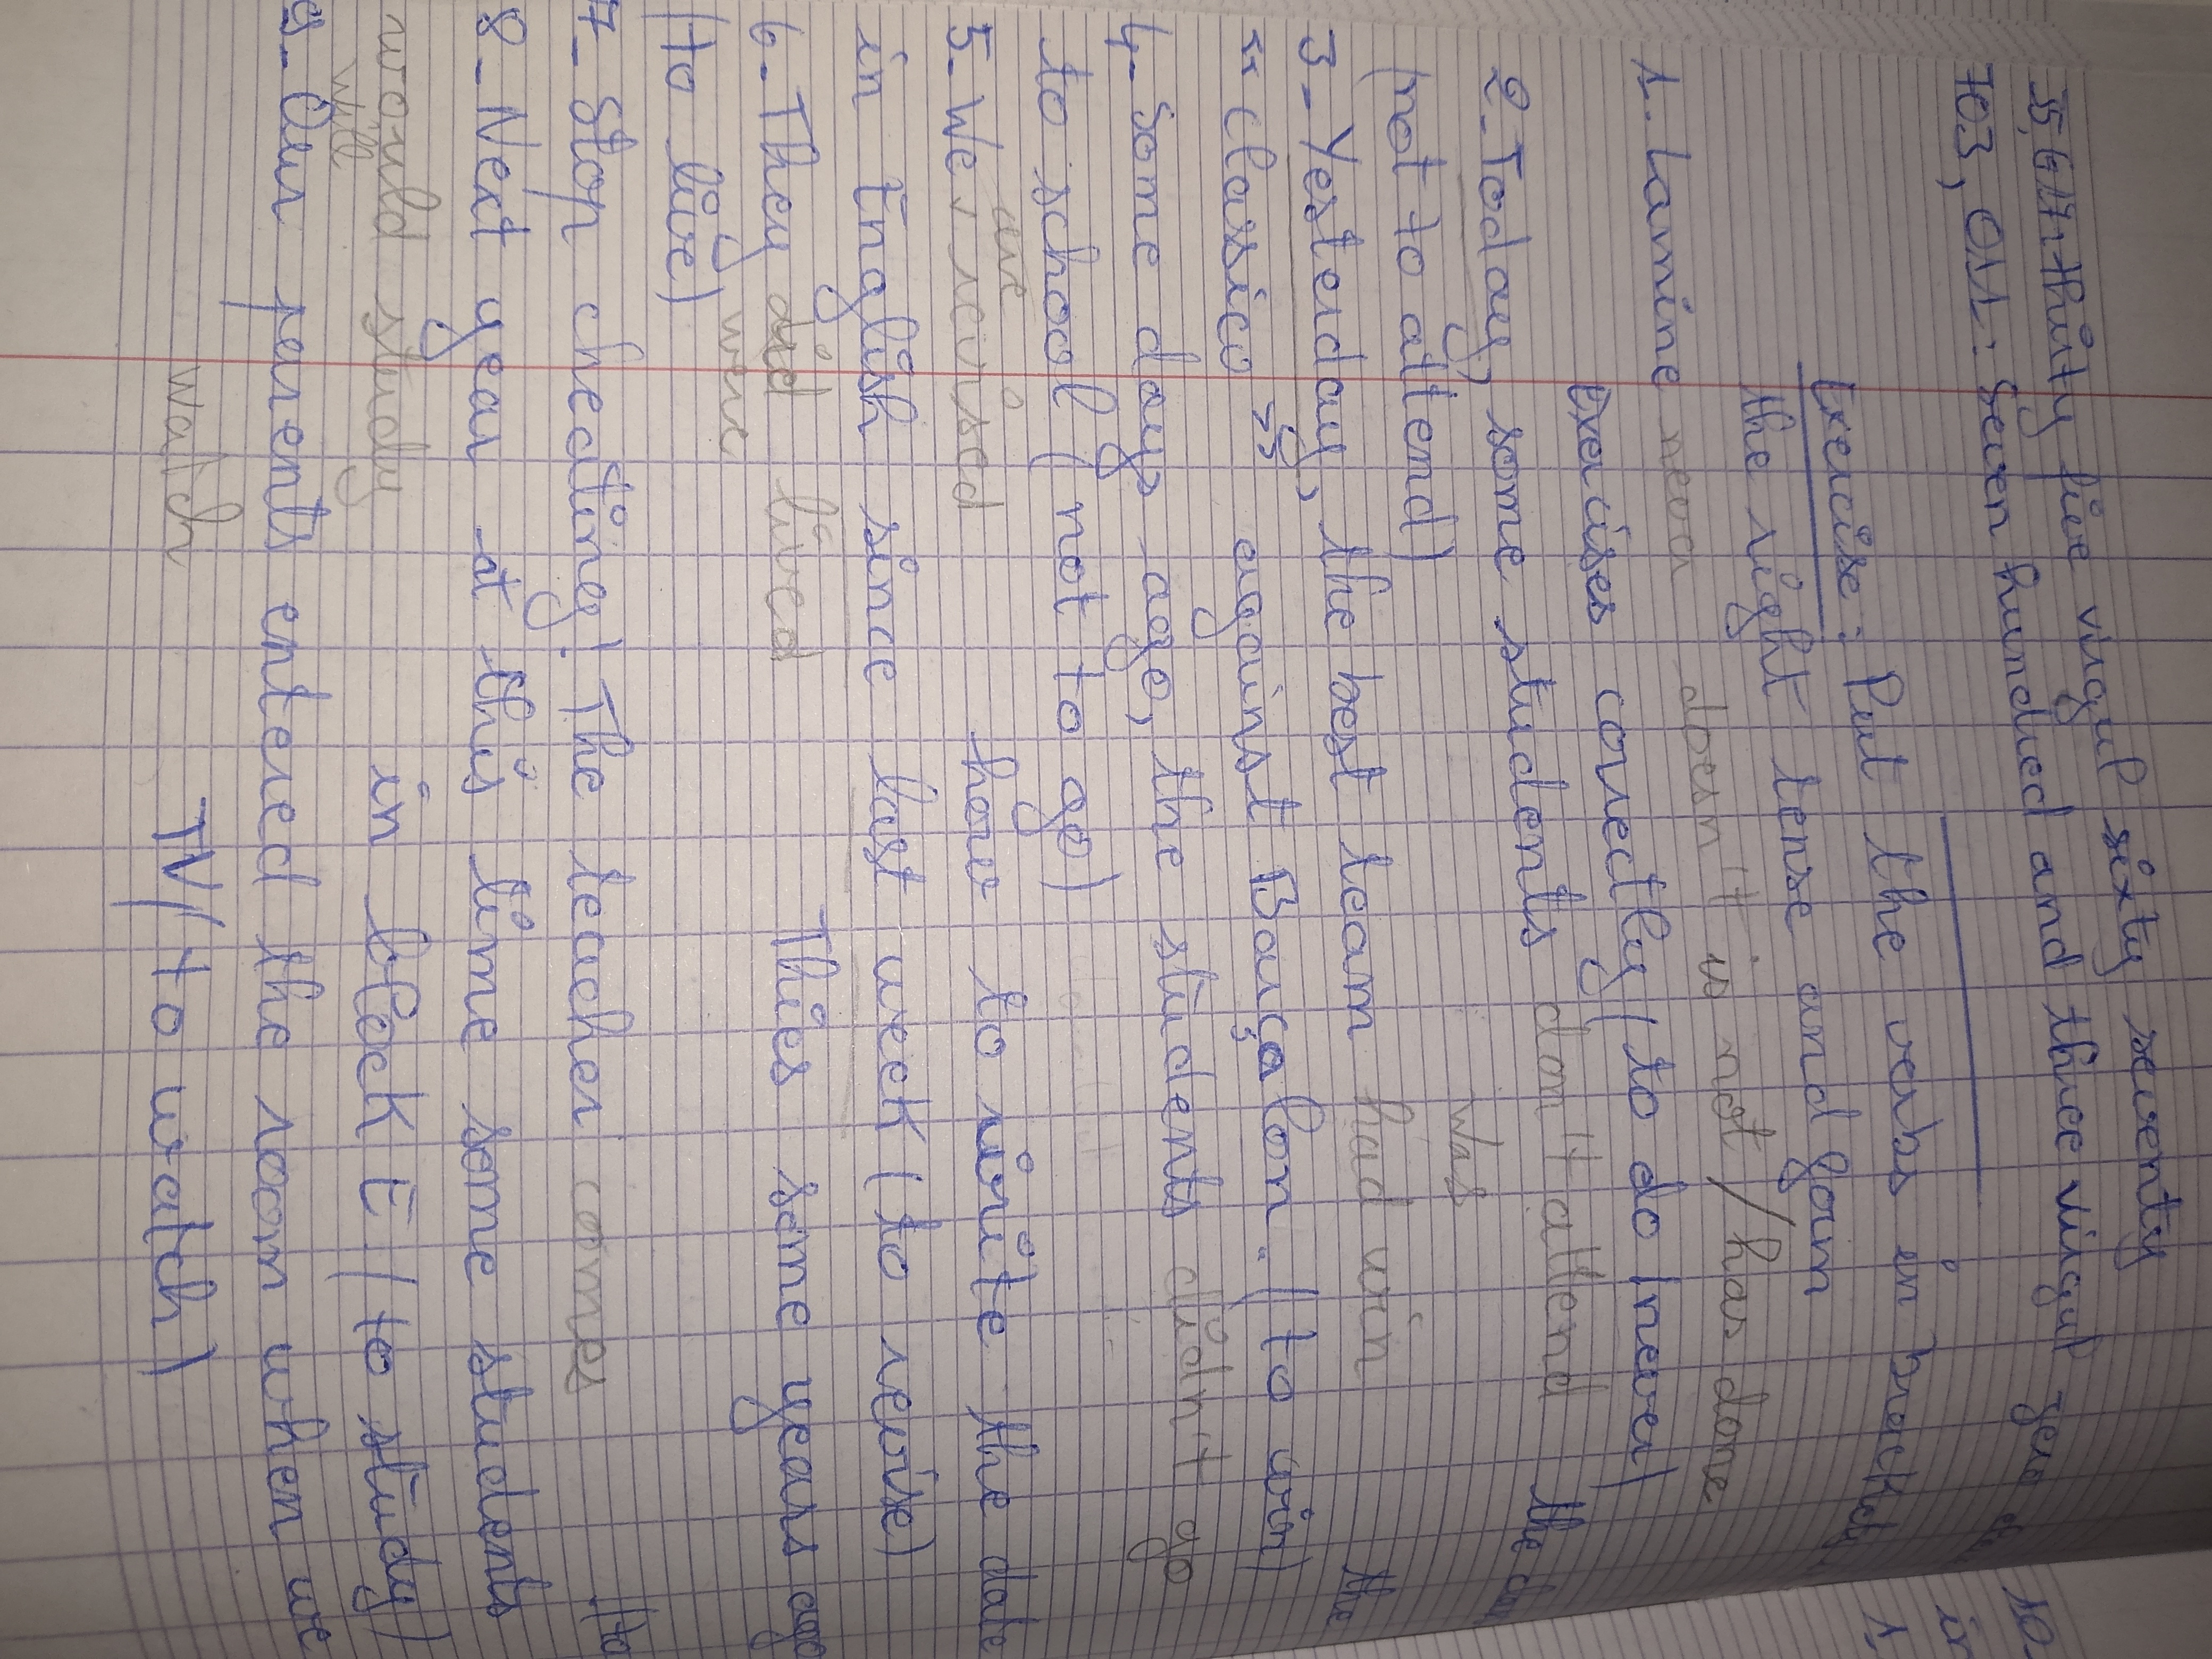 35,67: thirty five virgul sixty seventy
703, 011: Seven hundred and three virgul zero
Exercise: Put the verbs in
the right tense and form
1. Lamine never doesn't is not / has done
Exercises correctly (to do / never)
2_ Today, some students don't attend the
(not to attend)
was
3_ Yesterday, the best team had win the
"clasico" against Barçalon. (to win)
4_ Some days ago, the students didn't go
to school (not to go)
are
5_ We revised how to write the date
in English since last week (to revise)
6_ They did lived This some years ago
were
(to live)
7_ Stop cheating! The teacher comes
8_ Next year at this time some students
would study in block E (to study)
will
9_ Our parents entered the room when we
watch TV (to watch)
10_
in
1,